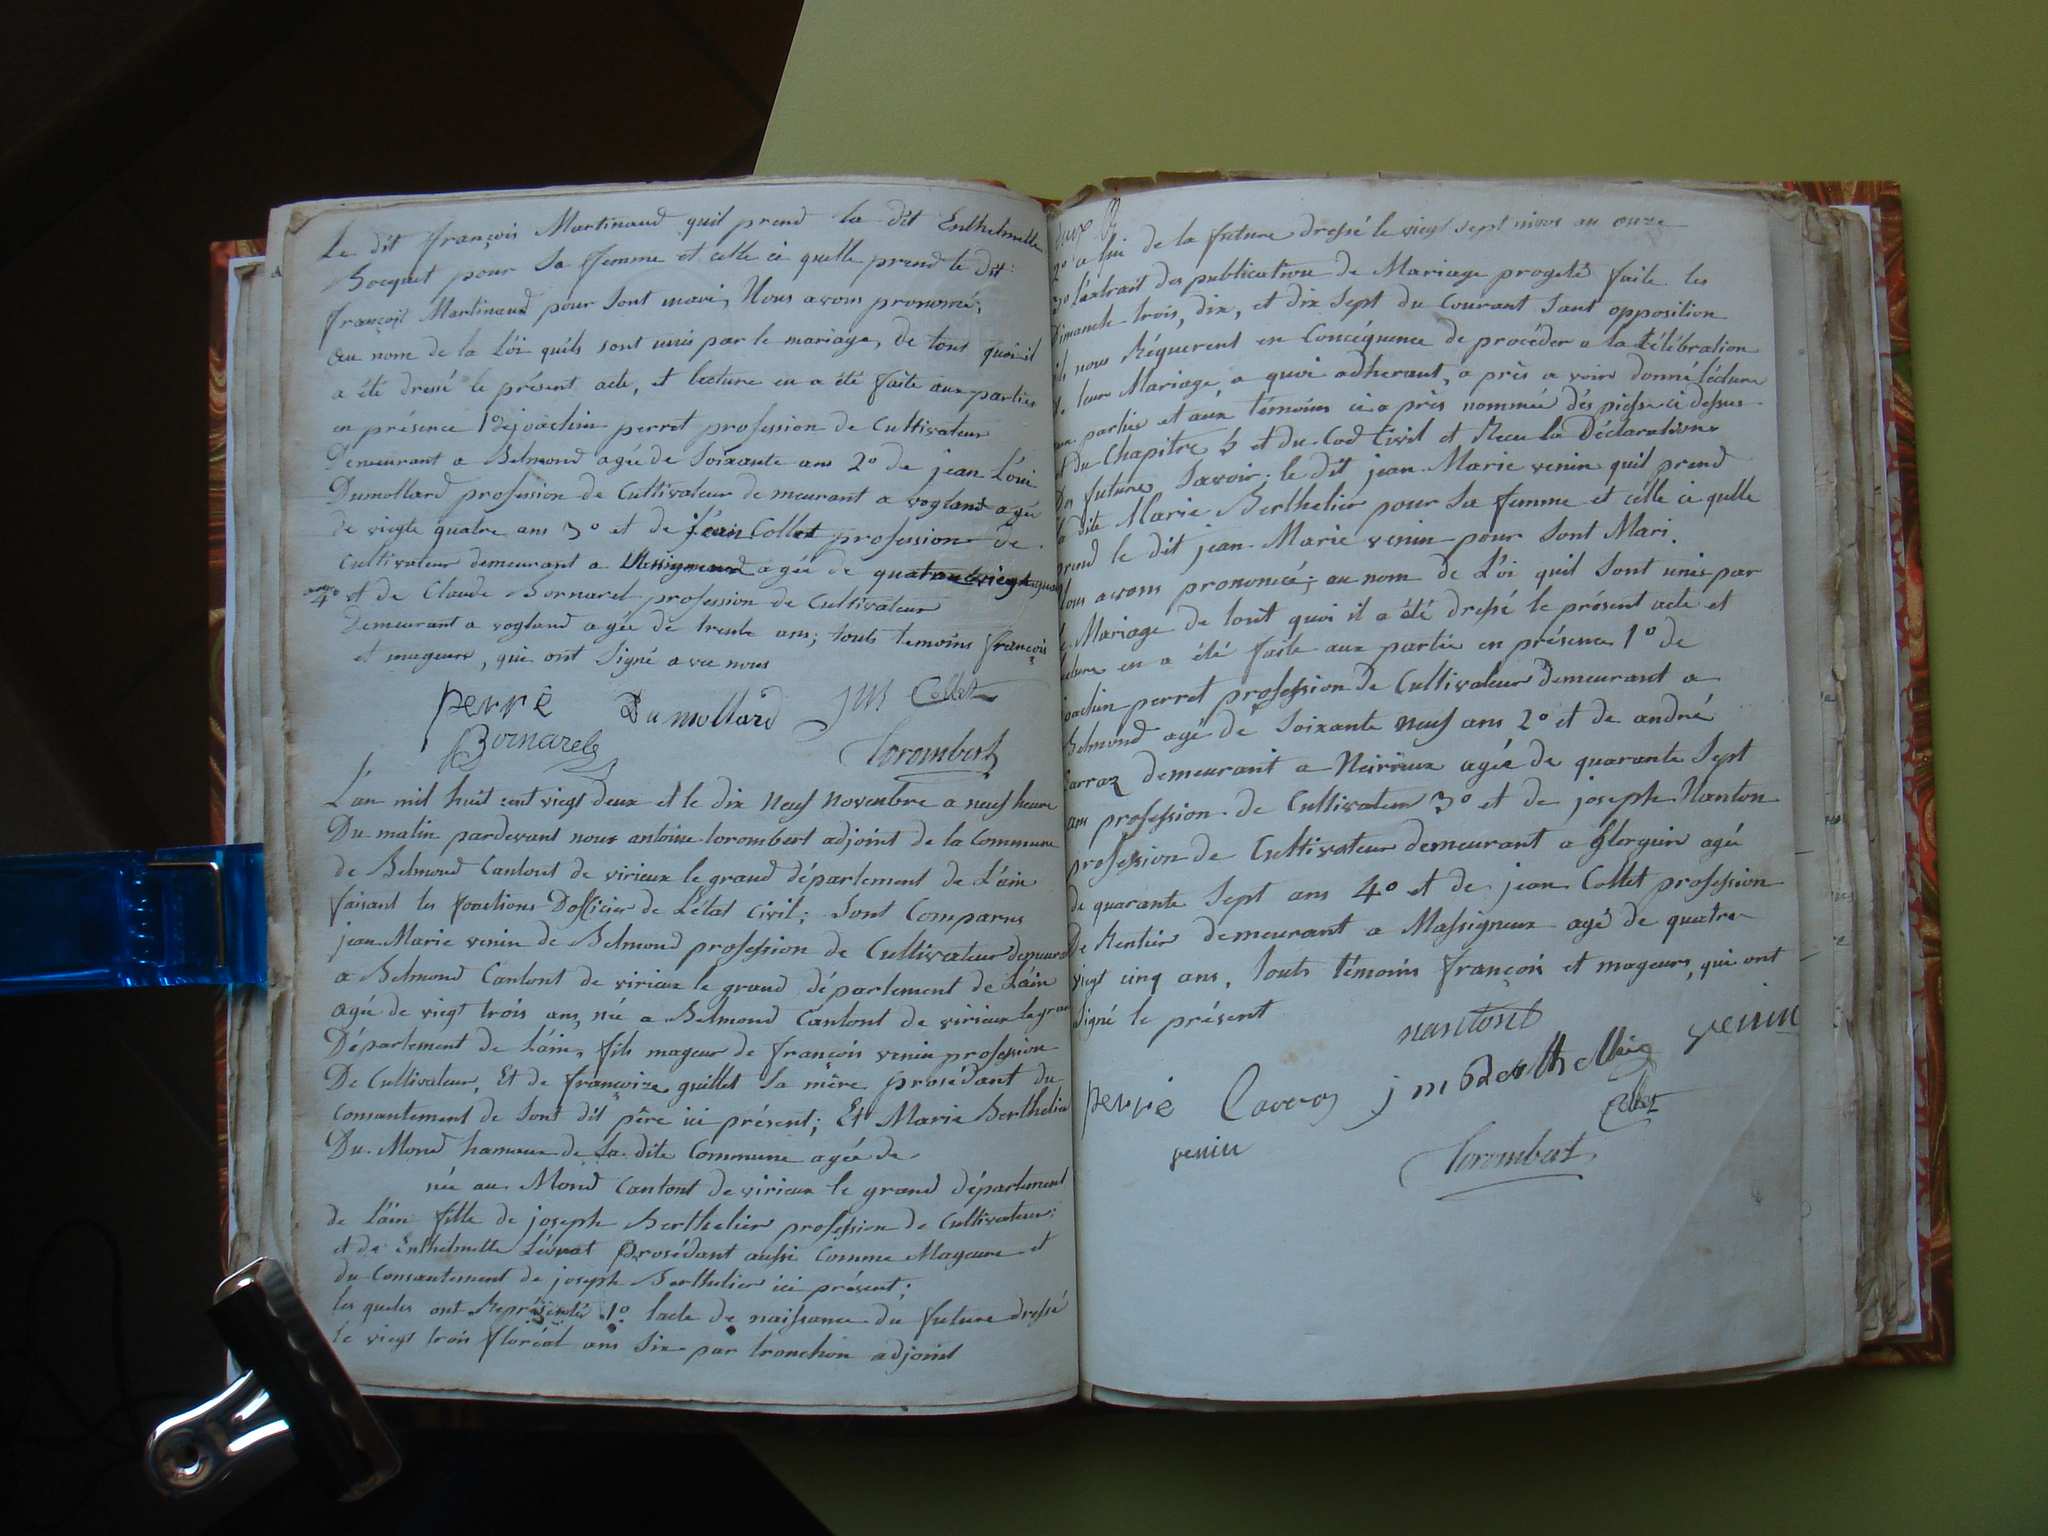 Le dit françois Martinand quil prend la dit Enthelmette
Bocquet pour Sa femme et celle ci quelle prend le dit
françois Martinand pour Sont mari, Nous avons prononcé;
au nom de la Loi quils sont unis par le mariage, de tout quoi il
a été dressé le présent acte, et lecture en a été faite aux parties
en présence 1° de joachim perret profession de Cultivateur
Demeurant a Belmond agée de Soixante ans 2° de jean Loui
Dumollard profession de Cultivateur demeurant a vogland agée
de viegte quatre ans 3° et de jean Collet profession de
Cultivateur demeurant a agée de
4° et de Claude Bornaret profession de Cultivateur
demeurant a vogland agée de trente ans; touts temoins françois
et mageurs, qui ont Signé avec nous
perré Dumollard jm Collet
Bornarel
torombert
L'an mil huit cent viegt deux et le dix neuf novembre a neuf heure
Du matin pardevant nous antoine torombert adjoint de la Commune
de Belmond Cantont de virieux le grand département de L'ain
faisant les fonctions Dofficier de L'état Civil; Sont Comparus
jean Marie venin de Belmond profession de Cultivateur demeurant
a Belmond Cantont de virieux le grand département de L'ain
agée de viegt trois ans, née a Belmond Cantont de virieux le grand
Département de L'ain, fils mageur de françois venin profession
De Cultivateur, Et de françoize guillet Sa mère prosédant du
Consantement de Sont dit père ici présent; Et Marie Berthelier
Du Mond hamaux de La dite Commune agée de
née au Mond Cantont de virieux le grand département
de L'ain fille de joseph Berthelier profession de Cultivateur;
et de Enthelmette Levrat prosédant aussi Comme Mageure et
du Consantement de joseph Berthelier ici présent;
les queles ont Représenté 1° lacte de naissance du future dressé
le viegt trois floréal ans Six par tronchon adjoint
2° a lui de la future dressé le viegt sept nivos an onze
3° L'extrait des publications de Mariage progeté faite les
Dimanche trois, dix, et dix Sept du Courant Sant opposition
ils nous Réquerent en Concéquence de procéder a la Célébration
de leur Mariage, a quoi adherant, a près a voir donné lécture
aux parties et aux témoins ci a près nommée dés piesse ci dessus
et du Chapitre 5 et du Cod Civil et Recu la Déclaration
Des future Savoir; le dit jean Marie venin quil prend
la dite Marie Berthelier pour Sa femme et célle ci quelle
prend le dit jean Marie venin pour Sont Mari.
Nous avons prononcé; au nom de L'oi quil Sont unis par
le Mariage de tout quoi il a été dressé le présent acte et
lecture en a été faite aux partie en présence 1° de
joachim perret profession de Cultivateur demeurant a
Belmond agé de Soixante neuf ans 2° et de andré
Carraz demeurant a Neirieux agée de quarante Sept
ans profession de Cultivateur 3° et de joseph Nanton
profession de Cultivateur demeurant a agée
de quarante Sept ans 4° et de jean Collet profession
De Rentier demeurant a Massigneux agé de quatre
viegt cinq ans, touts témoins françois et mageurs, qui ont
Signé le présent
nantont venin
perré Caveraz jm Berthellie
venin Collet
torombert